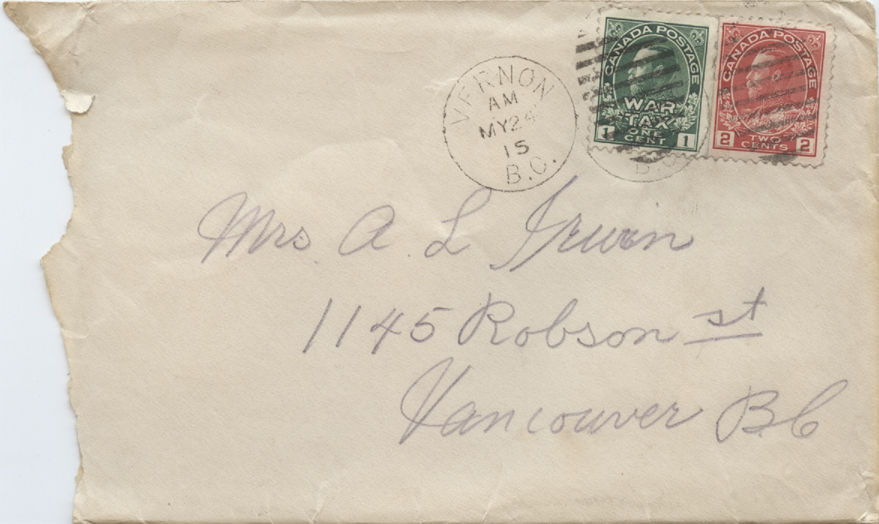 VERNON
AM
MY 24
15
B.C.
CANADA POSTAGE
WAR
TAX
1 ONE CENT 1
CANADA POSTAGE
2 TWO CENTS 2
B.C.
Mrs. A. L Irwin
1145 Robson st
Vancouver B.C